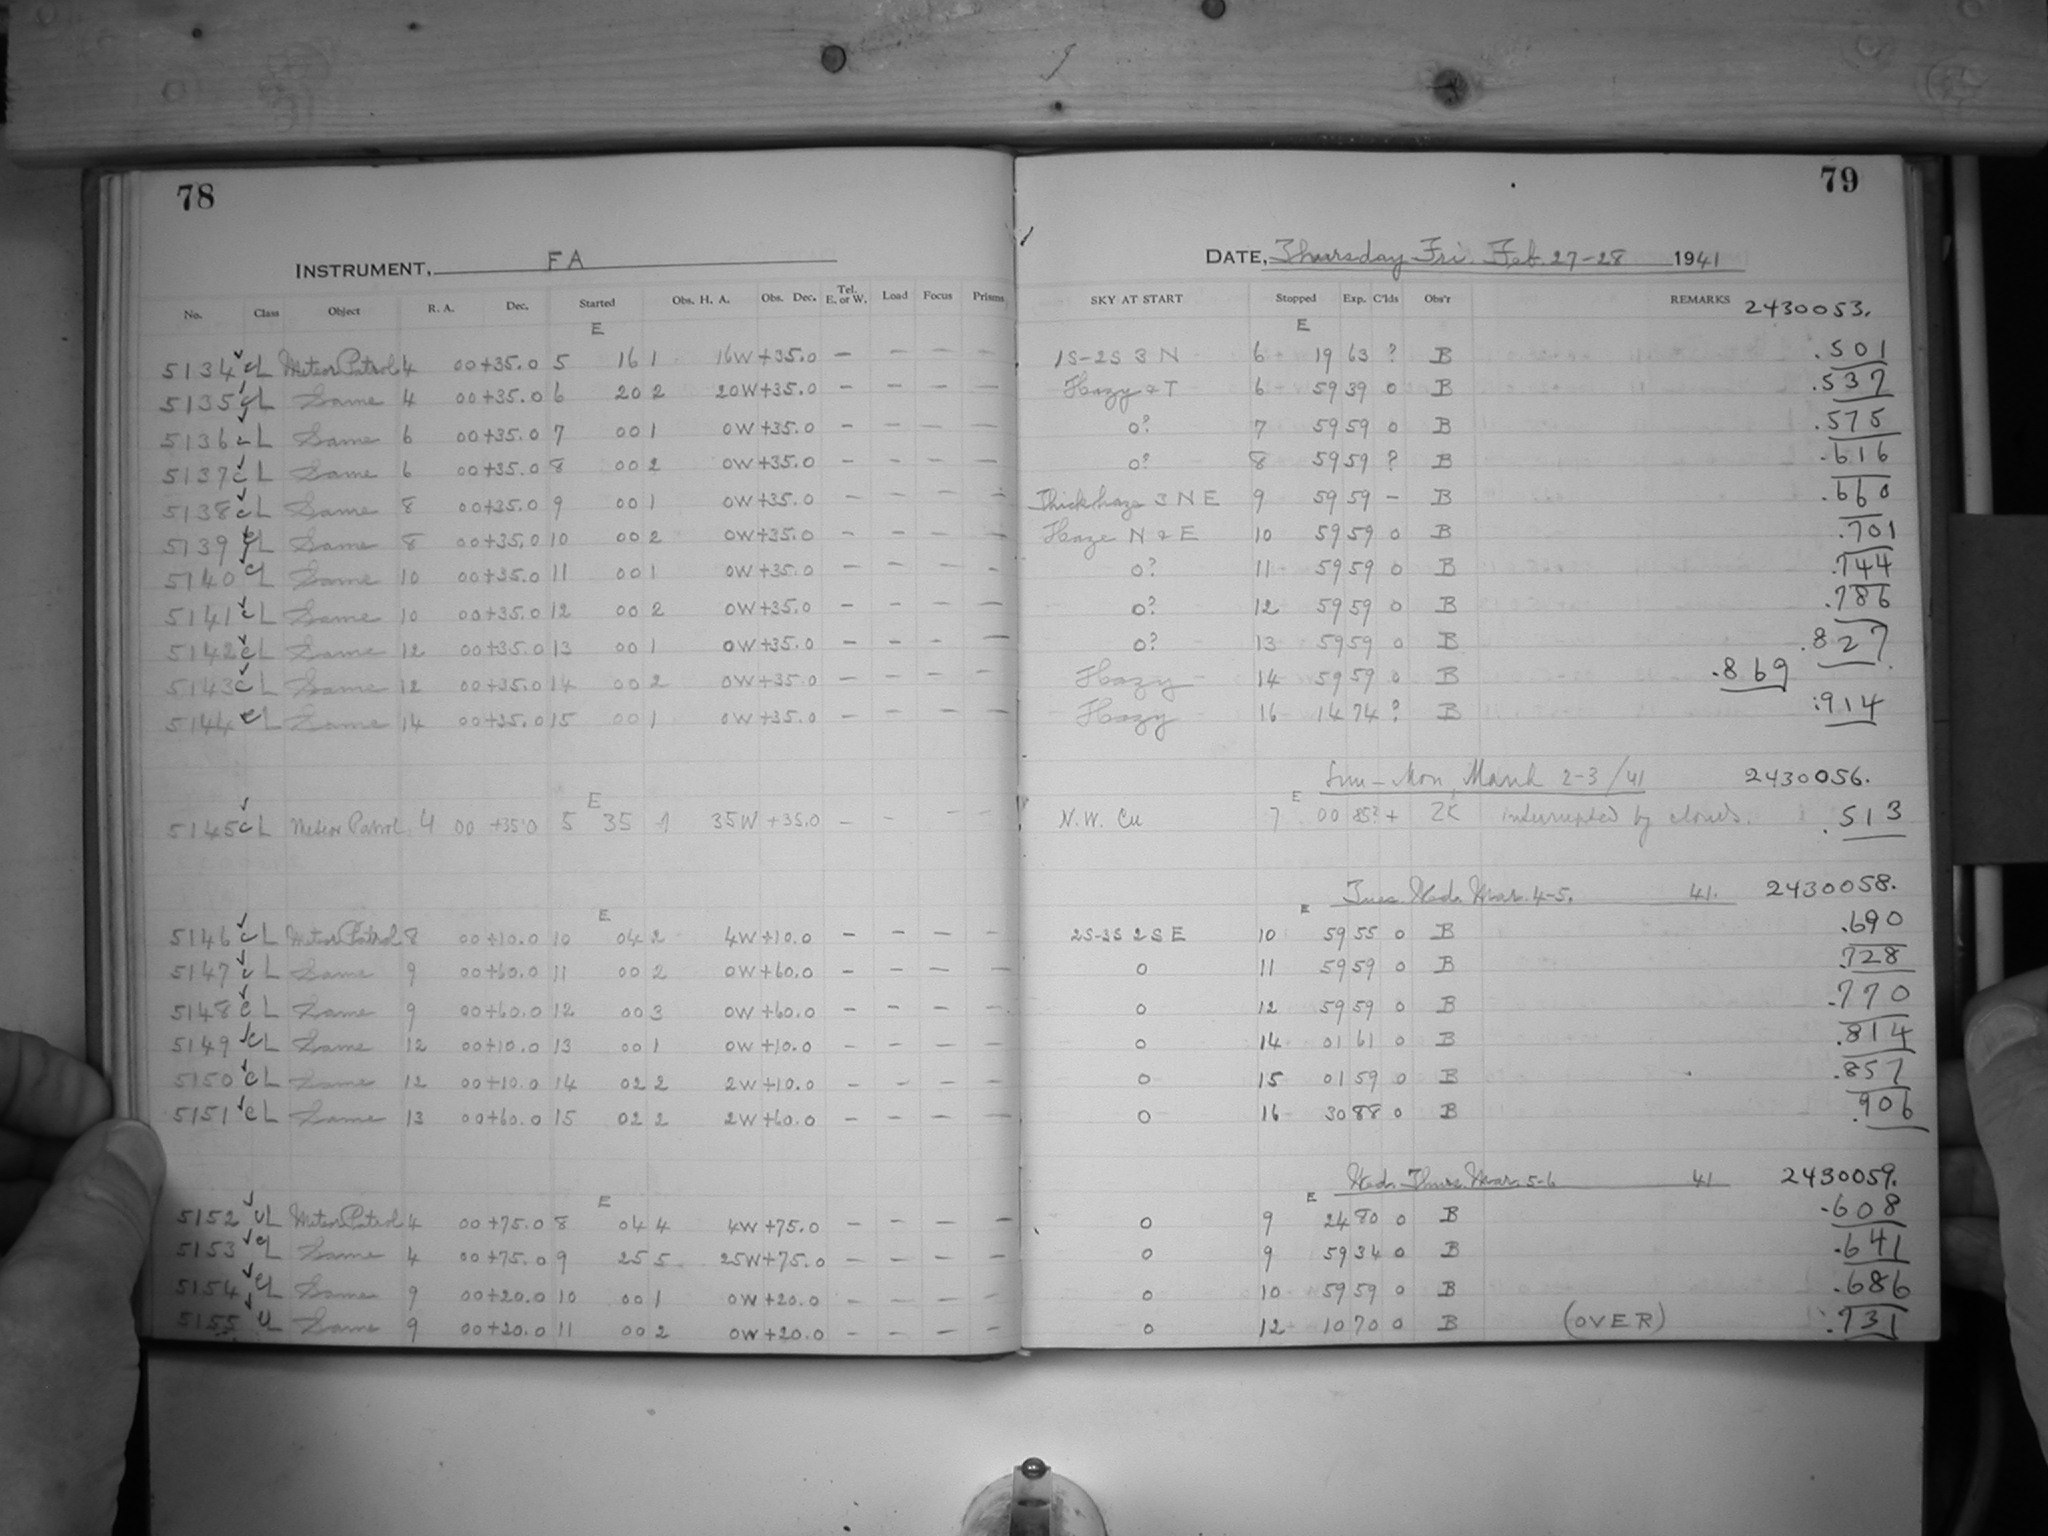 78
INSTRUMENT, FA
No. Class Object R. A. Dec. Started Obs. H. A. Obs. Dec. Tel. E. or W. Load Focus Prisms
E
5134 CL Meteor Patrol 4 00 +35.0 5 16 1 16W +35.0 — — — —
5135 CL Same 4 00 +35.0 6 20 2 20W +35.0 — — — —
5136 CL Same 6 00 +35.0 7 00 1 0W +35.0 — — — —
5137 CL Same 6 00 +35.0 8 00 2 0W +35.0 — — — —
5138 CL Same 8 00 +35.0 9 00 1 0W +35.0 — — — —
5139 CL Same 8 00 +35.0 10 00 2 0W +35.0 — — — —
5140 CL Same 10 00 +35.0 11 00 1 0W +35.0 — — — —
5141 CL Same 10 00 +35.0 12 00 2 0W +35.0 — — — —
5142 CL Same 12 00 +35.0 13 00 1 0W +35.0 — — — —
5143 CL Same 12 00 +35.0 14 00 2 0W +35.0 — — — —
5144 CL Same 14 00 +35.0 15 00 1 0W +35.0 — — — —
E
5145 CL Meteor Patrol 4 00 +35.0 5 35 1 35W +35.0 — — — —
E
5146 CL Meteor Patrol 8 00 +10.0 10 04 2 4W +10.0 — — — —
5147 CL Same 9 00 +60.0 11 00 2 0W +60.0 — — — —
5148 CL Same 9 00 +60.0 12 00 3 0W +60.0 — — — —
5149 CL Same 12 00 +10.0 13 00 1 0W +10.0 — — — —
5150 CL Same 12 00 +10.0 14 02 2 2W +10.0 — — — —
5151 CL Same 13 00 +60.0 15 02 2 2W +60.0 — — — —
E
5152 CL Meteor Patrol 4 00 +75.0 8 04 4 4W +75.0 — — — —
5153 CL Same 4 00 +75.0 9 25 5 25W +75.0 — — — —
5154 CL Same 9 00 +20.0 10 00 1 0W +20.0 — — — —
5155 CL Same 9 00 +20.0 11 00 2 0W +20.0 — — — —
79
DATE, Thursday Fri. Feb. 27-28 1941
SKY AT START Stopped Exp. C'lds Obs'r REMARKS 2430053.
E
1S-2S 3 N 6 19 63 ? B .501
Hazy & T 6 59 39 0 B .537
0? 7 59 59 0 B .575
0? 8 59 59 ? B .616
Thick haze 3 N E 9 59 59 — B .660
Haze N & E 10 59 59 0 B .701
0? 11 59 59 0 B .744
0? 12 59 59 0 B .786
0? 13 59 59 0 B .827
Hazy 14 59 59 0 B .869
Hazy 16 14 74 ? B .914
Sun-Mon, March 2-3/41 2430056.
E
N.W. Cu 7 00 85? + interrupted by clouds. .513
Tues. Wed. Mar. 4-5. 41. 2430058.
E
2S-3S 2 S E 10 59 55 0 B .690
0 11 59 59 0 B .728
0 12 59 59 0 B .770
0 14 01 61 0 B .814
0 15 01 59 0 B .857
0 16 30 88 0 B .906
Wed. Thurs. Mar. 5-6 41 2430059.
E
0 9 24 80 0 B .608
0 9 59 34 0 B .641
0 10 59 59 0 B .686
0 12 10 70 0 B (OVER) .731